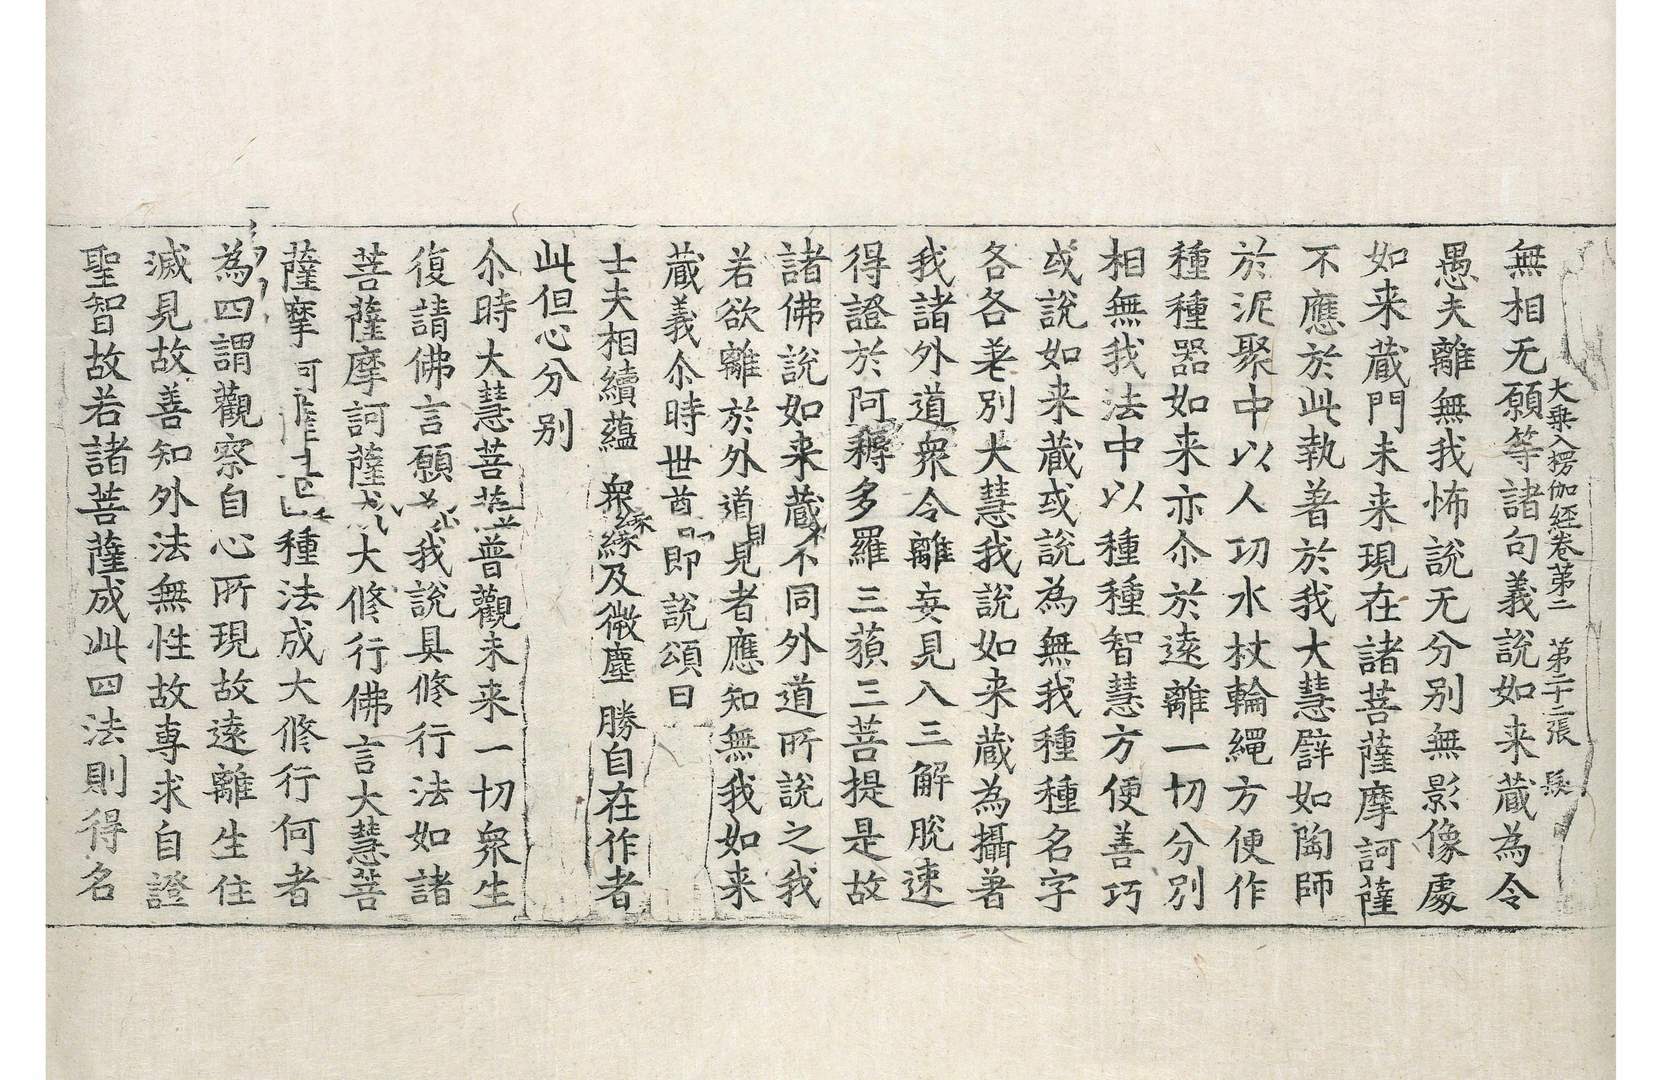 大乗入楞伽經卷第二 第二十二張 髮
無相无願等諸句義說如来蔵為令
愚夫離無我怖說无分别無影像處
如来蔵門未来現在諸菩薩摩訶薩
不應於此執著於我大慧譬如陶師
於泥聚中以人功水杖輪繩方便作
種種器如来亦尒於遠離一切分別
相無我法中以種種智慧方便善巧
或說如来蔵或說為無我種種名字
各各差別大慧我說如来蔵為攝著
我諸外道衆令離妄見入三解脫速
得證於阿耨多羅三藐三菩提是故
諸佛說如来蔵不同外道所說之我
若欲離於外道見者應知無我如来
蔵義尒時世尊即說頌曰
士夫相續蘊 衆緣及微塵 勝自在作者
此但心分別
尒時大慧菩薩普觀未来一切衆生
復請佛言願為我說具修行法如諸
菩薩摩訶薩成大修行佛言大慧菩
薩摩訶薩具四種法成大修行何者
為四謂觀察自心所現故遠離生住
滅見故善知外法無性故専求自證
聖智故若諸菩薩成此四法則得名